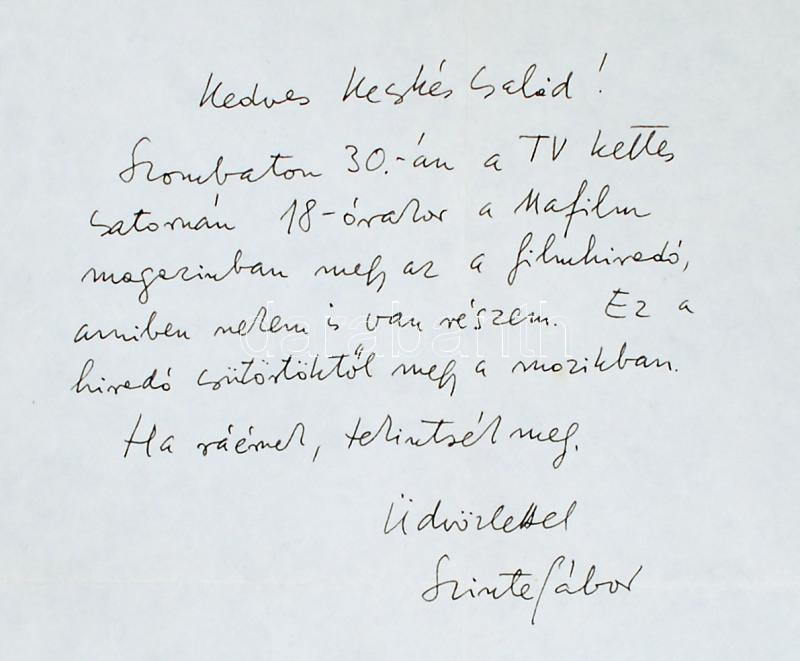 Kedves Kecskés Család!
Szombaton 30.-án a TV kettes
csatornán 18-órakor a Mafilm
magazinban megy az a filmhiradó,
amiben nekem is van részem. Ez a
hiradó csütörtöktől megy a mozikban.
Ha ráérnek, tekintsék meg.
Üdvözlettel
Szinte Gábor
darabanth